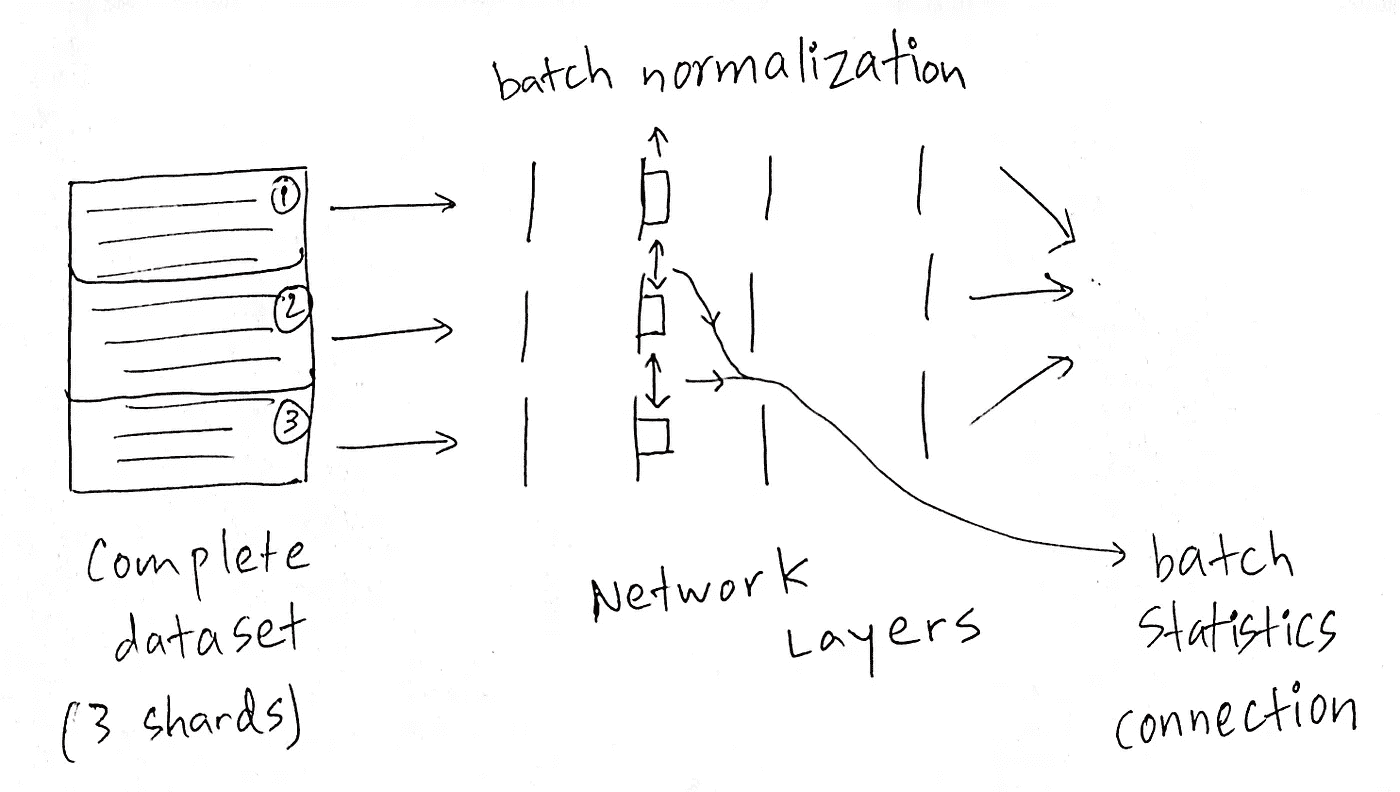 batch normalization
1
2
3
Complete
dataset
(3 shards)
Network
Layers
batch
statistics
connection